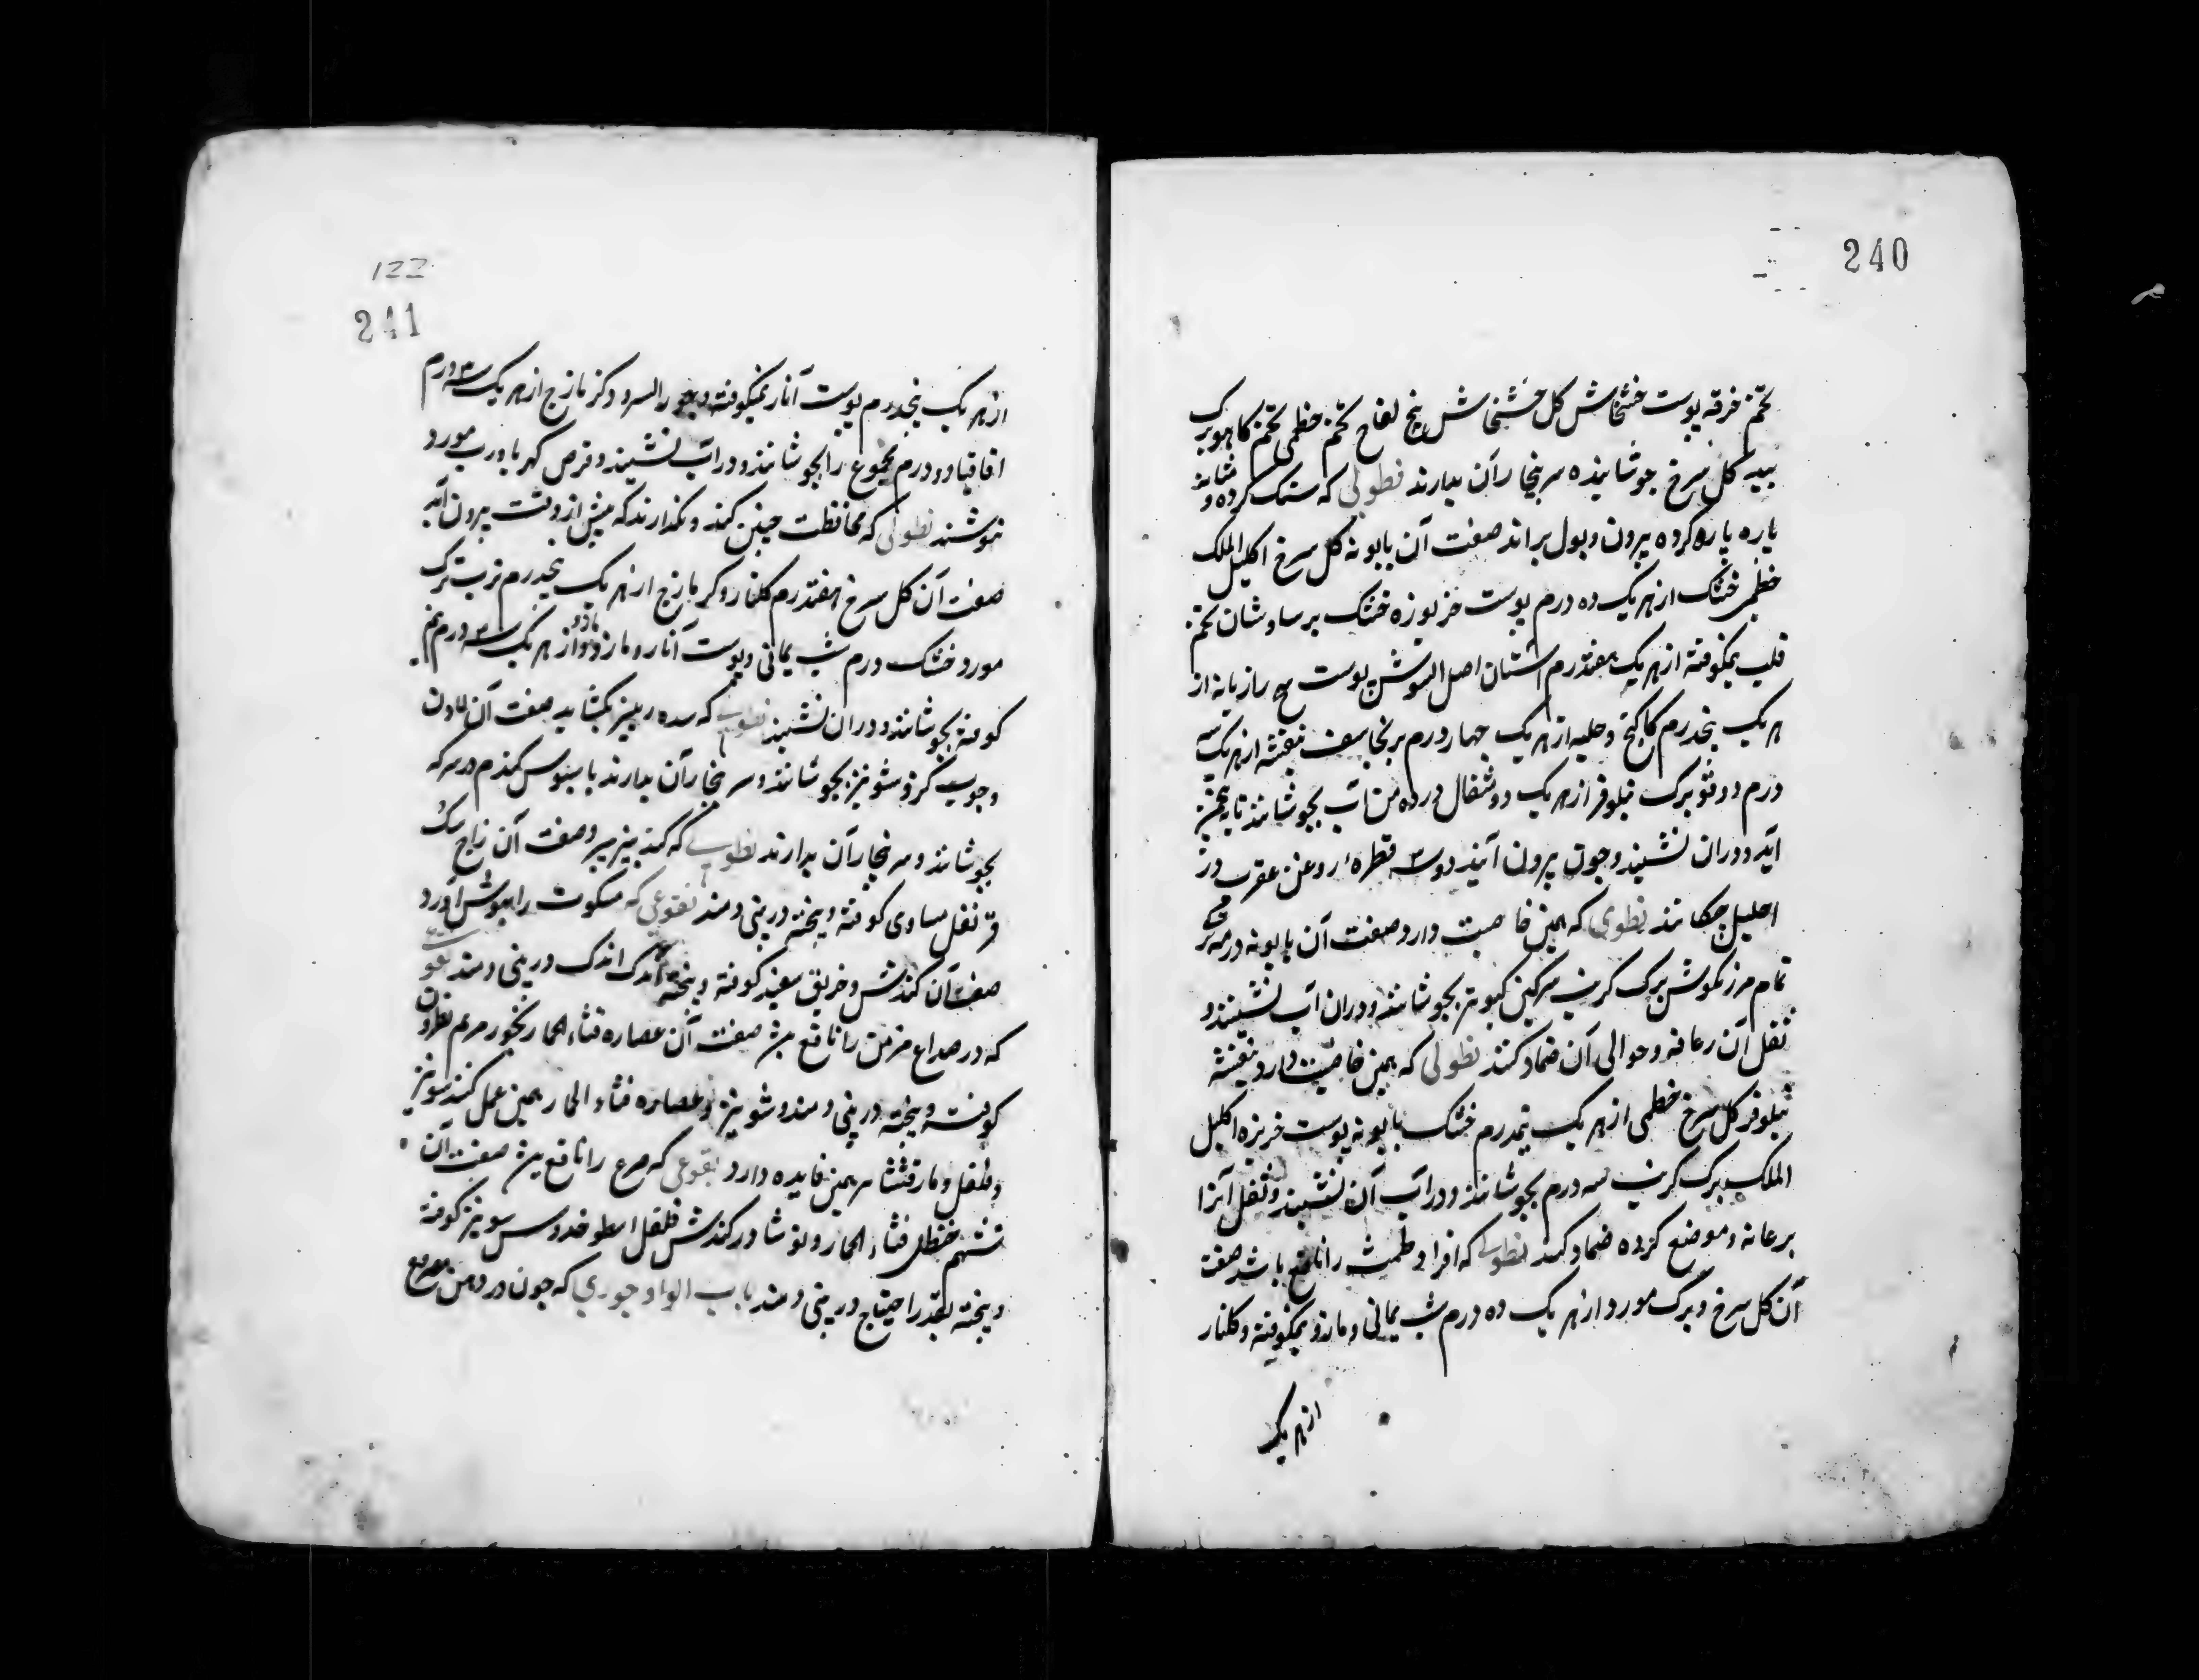 240
تخم خرفه پوست خشخاش کل خشخاش بیخ لفاح تخم خطمی تخم کاهو برک
بید کل سرخ جوشانیده سر ببخار آن بدارند نطولی که سنک کرده و مثانه
پاره پاره کرده بیرون و بول براند صفت آن بابونه کل سرخ اکلیل الملک
خطمی خشک از هر یک ده درم پوست خربوزه خشک برساوشان تخم
قلب نیمکوفته از هر یک هفتدرم اشتان اصل السوس پوست بیخ رازیانه از
هر یک پنجدرم کاکنج و حلبه از هر یک چهار درم برنجاسف بنفشه از هر یک سه
درم و دوقو برک نیلوفر از هر یک دو مثقال در ده من آب بجوشانند تا به پنجمن
آید و در آن نشینند و چون بیرون آیند دو سه قطره روغن عقرب در
احلیل چکانند نطولی که همین خاصیت دارد صفت آن بابونه درمنه ترکی
تمام مرزنکوش برک کرنب سرکین کبوتر بجوشانند و در آن آب نشینند و
ثفل آن بر عانه و حوالی آن ضماد کنند نطولی که همین خاصیت دارد بنفشه
نیلوفر کل سرخ خطمی از هر یک پنجدرم خشک بابونه پوست خربزه اکلیل
الملک برک کرنب سه درم بجوشانند و در آب آن نشینند و ثفل آنرا
بر عانه و موضع کرده ضماد کنند نطولی که افراط طمث را نافع باشد صفت
آن کل سرخ و برک مورد از هر یک ده درم شب یمانی و مازو نیمکوفته و کلنار
از هر یک
122
241
از هر یک پنجدرم پوست انار نیمکوفته و جوز السرو و کزمازج از هر یک سه درم
اقاقیا دو درم مجموع را بجوشانند و در آب نشینند و قرص کهربا و رب مورد
بنوشند نطولی که محافظت جنین کند و نکذارند که پیش از وقت بیرون آید
صفت آن کل سرخ هفتدرم کلنار و کزمازج از هر یک پنجدرم تربت ترک
مورد خشک درم شب یمانی و پوست انار و مازو از هر یک سه درم نیم
کوفته بجوشانند و در آن نشینند نطولی که سده ریبیز بکشاید صفت آن لادن
و چوب کز و شونیز بجوشانند و سر ببخار آن بدارند یا سبوس کندم در سرکه
بجوشانند و سر ببخار آن بدارند نطولی که کند بینی ببرد صفت آن زاج سک
قرنفل مساوی کوفته و بیخته در بینی دمند نفوعی که مسکوت را بهوش آورد
صفت آن کندش و خربق سفید کوفته و بیخته اندک اندک در بینی دمند نفوعی
که در صداع مزمن را نافع بود صفت آن عصاره قثاء الحمار بخور مریم نطرون
کوفته و بیخته در بینی دمند و شونیز و عصاره قثاء الحمار همین عمل کنند شونیز
و فلفل و مارقشیشا همین فایده دارد نفوعی که صرع را نافع بود صفت آن
شحم حنظل قثاء الحمار و نوشادر کندش فلفل اسطوخدوس شونیز کوفته
و بیخته بقدر احتیاج در بینی دمند باب الواو وجوری که چون در دهن مصروع